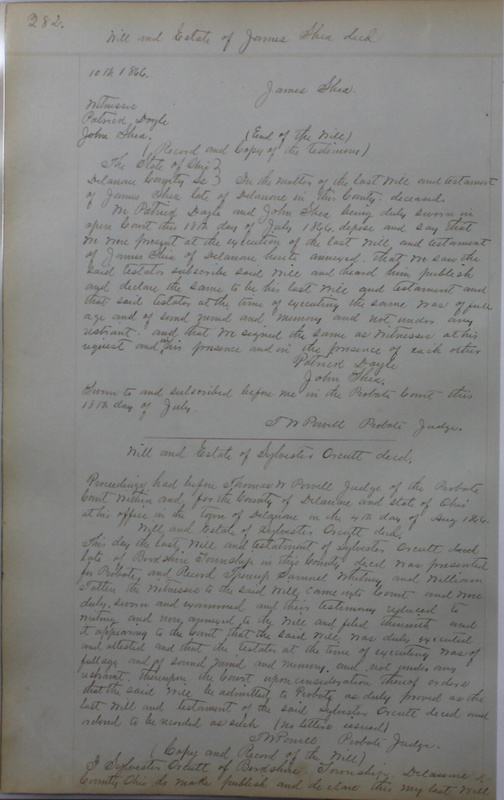 282.
Will and Estate of James Shea decd
10th 1866.
James Shea.
Witnesses
Patrick Doyle
John Shea.
(End of the Will)
(Record and Copy of the Testimony)
The State of Ohio }
Delaware County Ss } In the matter of the last Will and testament
of James Shea late of Delaware in this County, deceased.
We Patrick Doyle and John Shea being duly sworn in
open Court this 18th day of July 1866, depose and say that
we were present at the execution of the last Will and testament
of James Shea of Delaware hereto annexed. that we saw the
Said testator subscribe said Will and heard him publish
and declare the same to be his last Will and testament and
that said testator at the time of executing the same was of full
age and of sound mind and memory and not under any
restraint. and that we signed the same as Witnesses at his
request and in his presence and in the presence of each other
Patrick Doyle
John Shea.
Sworn to and subscribed before me in the Probate Court this
18th day of July.
T W Powell Probate Judge.
Will and Estate of Sylvester Orcutt decd.
Proceedings had before Thomas W Powell Judge of the Probate
Court within and for the County of Delaware and state of Ohio
at his office in the town of Delaware on the 4th day of Aug 1866.
Will and Estate of Sylvester Orcutt decd.
This day the last Will and testament of Sylvester Orcutt decd
late of Township in this County decd was presented
for Probate and Record whereup Samuel Whitney and William
the Witnesses to the said Will came into Court and were
duly sworn and examined and their testimony reduced to
writing and annexed to the Will and filed therewith and
it appearing to the Court that the said Will was duly executed
and attested and that the testator at the time of executing was of
full age and of sound mind and memory and not under any
restraint. thereupon the Court upon consideration thereof orders
that the said Will be admitted to Probate as duly proved as the
last Will and testament of the said Sylvester Orcutt decd and
ordered to be recorded as such (no letters issued)
T W Powell Probate Judge.
(Copy and Record of the Will)
I Sylvester Orcutt of Township, Delaware
County, Ohio do make publish and declare this my last Will